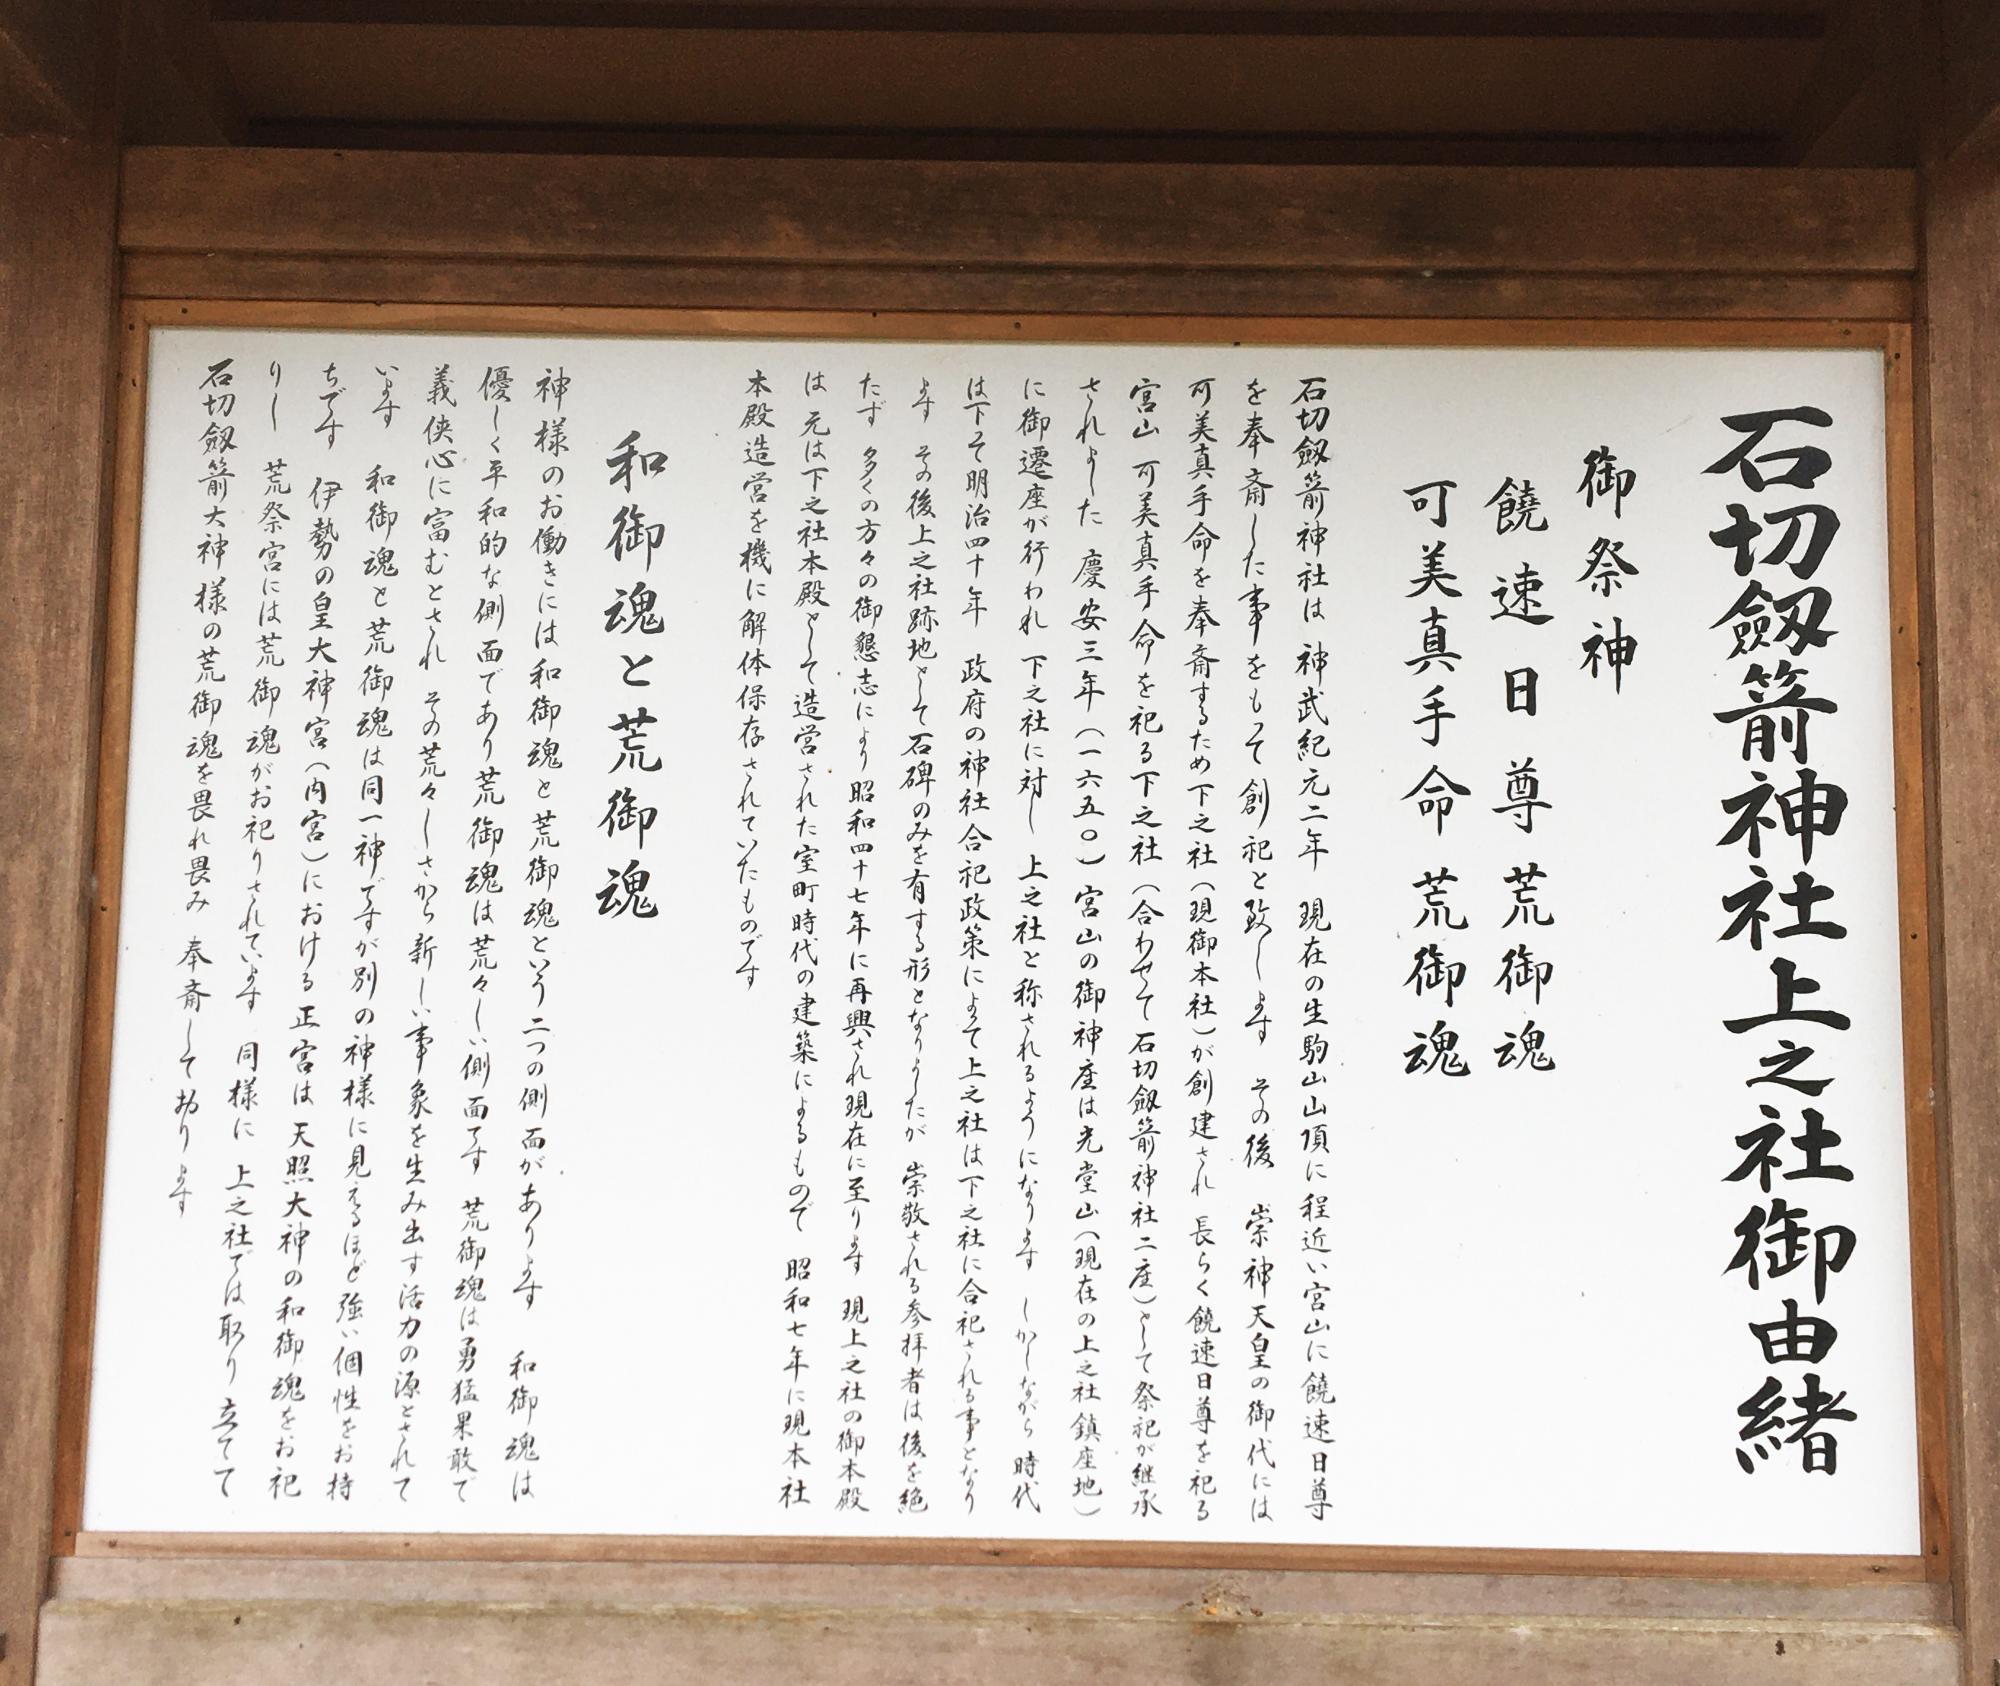 石切劔箭神社上之社御由緒
御祭神
饒速日尊荒御魂
可美真手命荒御魂
石切劔箭神社は 神武紀元二年 現在の生駒山山頂に程近い宮山に饒速日尊
を奉斎した事をもって創祀と致します その後 崇神天皇の御代には
可美真手命を奉斎するため下之社(現御本社)が創建され 長らく饒速日尊を祀る
宮山 可美真手命を祀る下之社(合わせて石切劔箭神社二座)として祭祀が継承
されました 慶安三年(一六五〇)宮山の御神座は光堂山(現在の上之社鎮座地)
に御遷座が行われ 下之社に対し 上之社と称されるようになります しかしながら 時代
は下って明治四十年 政府の神社合祀政策によって上之社は下之社に合祀される事となり
ます その後上之社跡地として石碑のみを有する形となりましたが 崇敬される参拝者は後を絶
たず 多くの方々の御懇志により昭和四十七年に再興され現在に至ります 現上之社の御本殿
は 元は下之社本殿として造営された室町時代の建築によるもので 昭和七年に現本社
本殿造営を機に解体保存されていたものです
和御魂と荒御魂
神様のお働きには和御魂と荒御魂という二つの側面があります 和御魂は
優しく平和的な側面であり荒御魂は荒々しい側面です 荒御魂は勇猛果敢で
義侠心に富むとされ その荒々しさから新しい事象を生み出す活力の源とされて
います 和御魂と荒御魂は同一神ですが別の神様に見えるほど強い個性をお持
ちです 伊勢の皇大神宮(内宮)における正宮は天照大神の和御魂をお祀
りし 荒祭宮には荒御魂がお祀りされています 同様に 上之社では取り立てて
石切劔箭大神様の荒御魂を畏れ畏み 奉斎しております